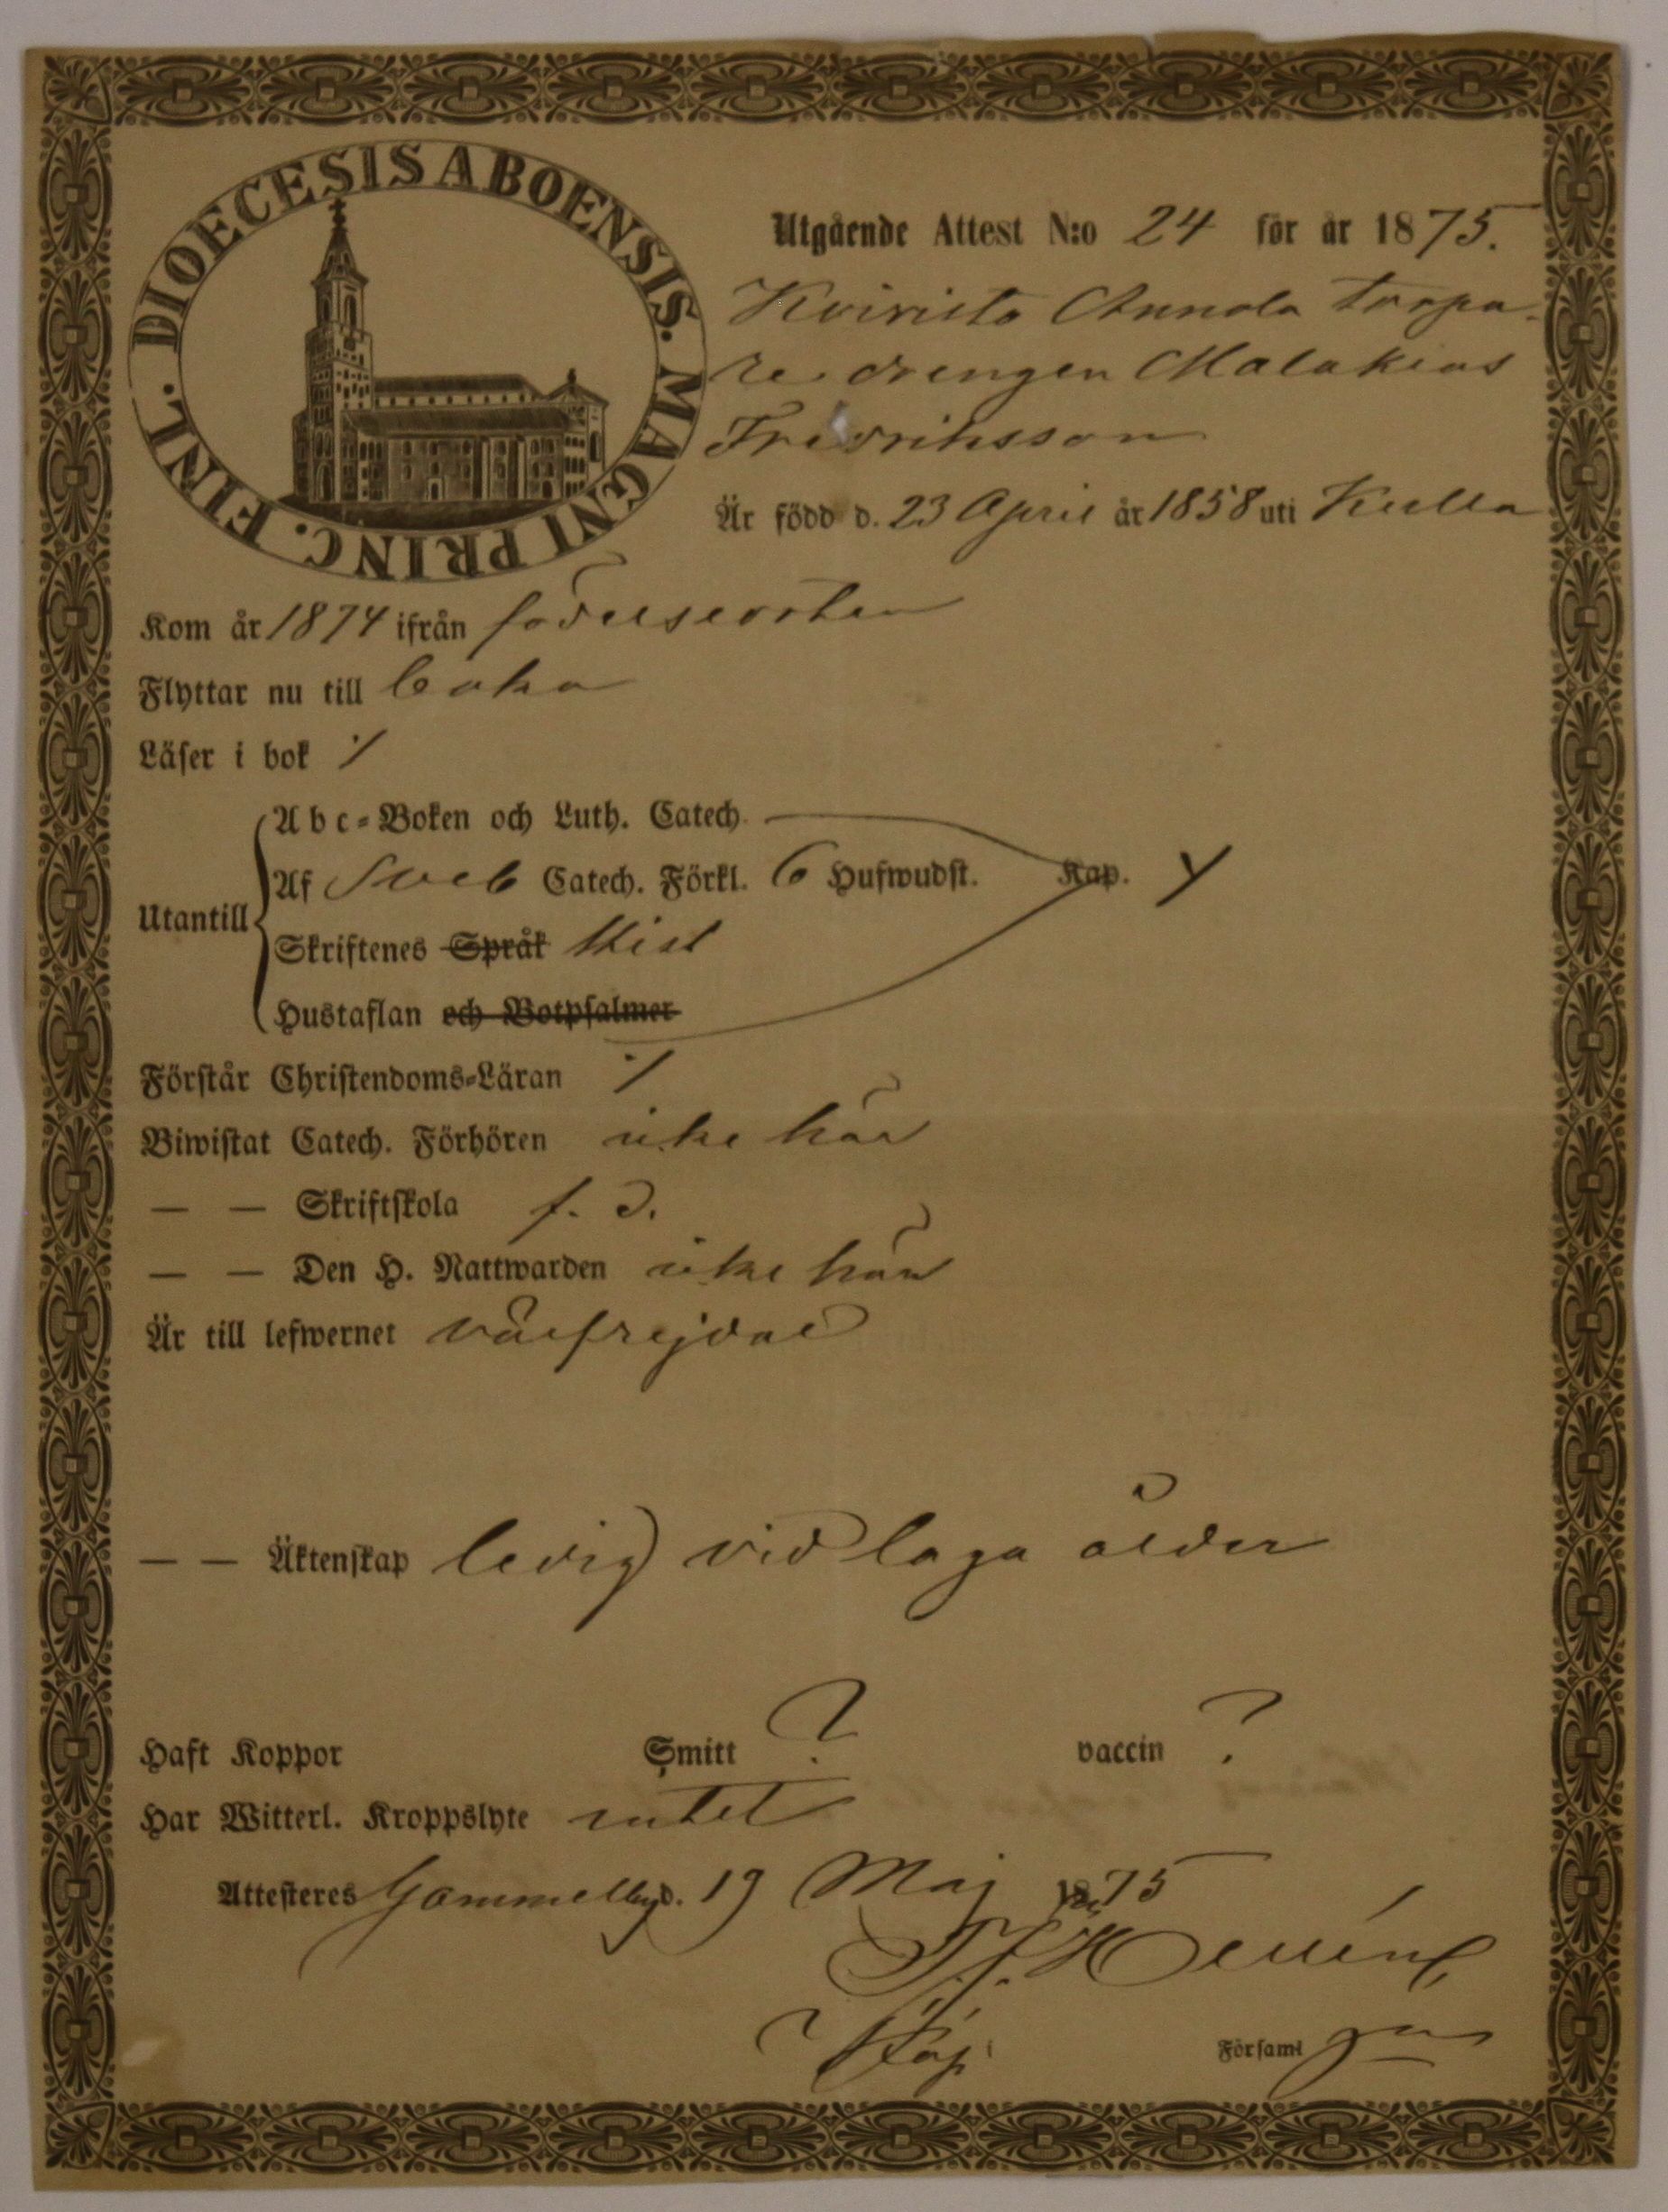 DIOECESIS ABOENSIS. MAGNI PRINC. FINL.
Utgående Attest N:o 24 för år 1875.
Koivisto Annola torpa-
re drengen Malakias
Fredriksson
Är född d. 23 April år 1858 uti Kulla
Kom år 1874 ifrån födelseorten
Flyttar nu till
Läser i bok ⁒
Abc-Boken och Luth. Catech.
Utantill Af Sveb Catech. Förkl. 6 Hufwudst. Kap. y
Skriftenes Språk
Hustaflan och Botpsalmer
Förstår Christendoms-Läran ⁒
Biwistat Catech. Förhören icke här
— — Skriftskola f. d.
— — Den H. Nattwarden icke här
Är till lefwernet välfrejdad
— — Äktenskap ledig vid laga ålder
Haft Koppor Smitt ? vaccin ?
Har Witterl. Kroppslyte intet
Attesteres Gammelby d. 19 Maj 1875
Kap i Församl